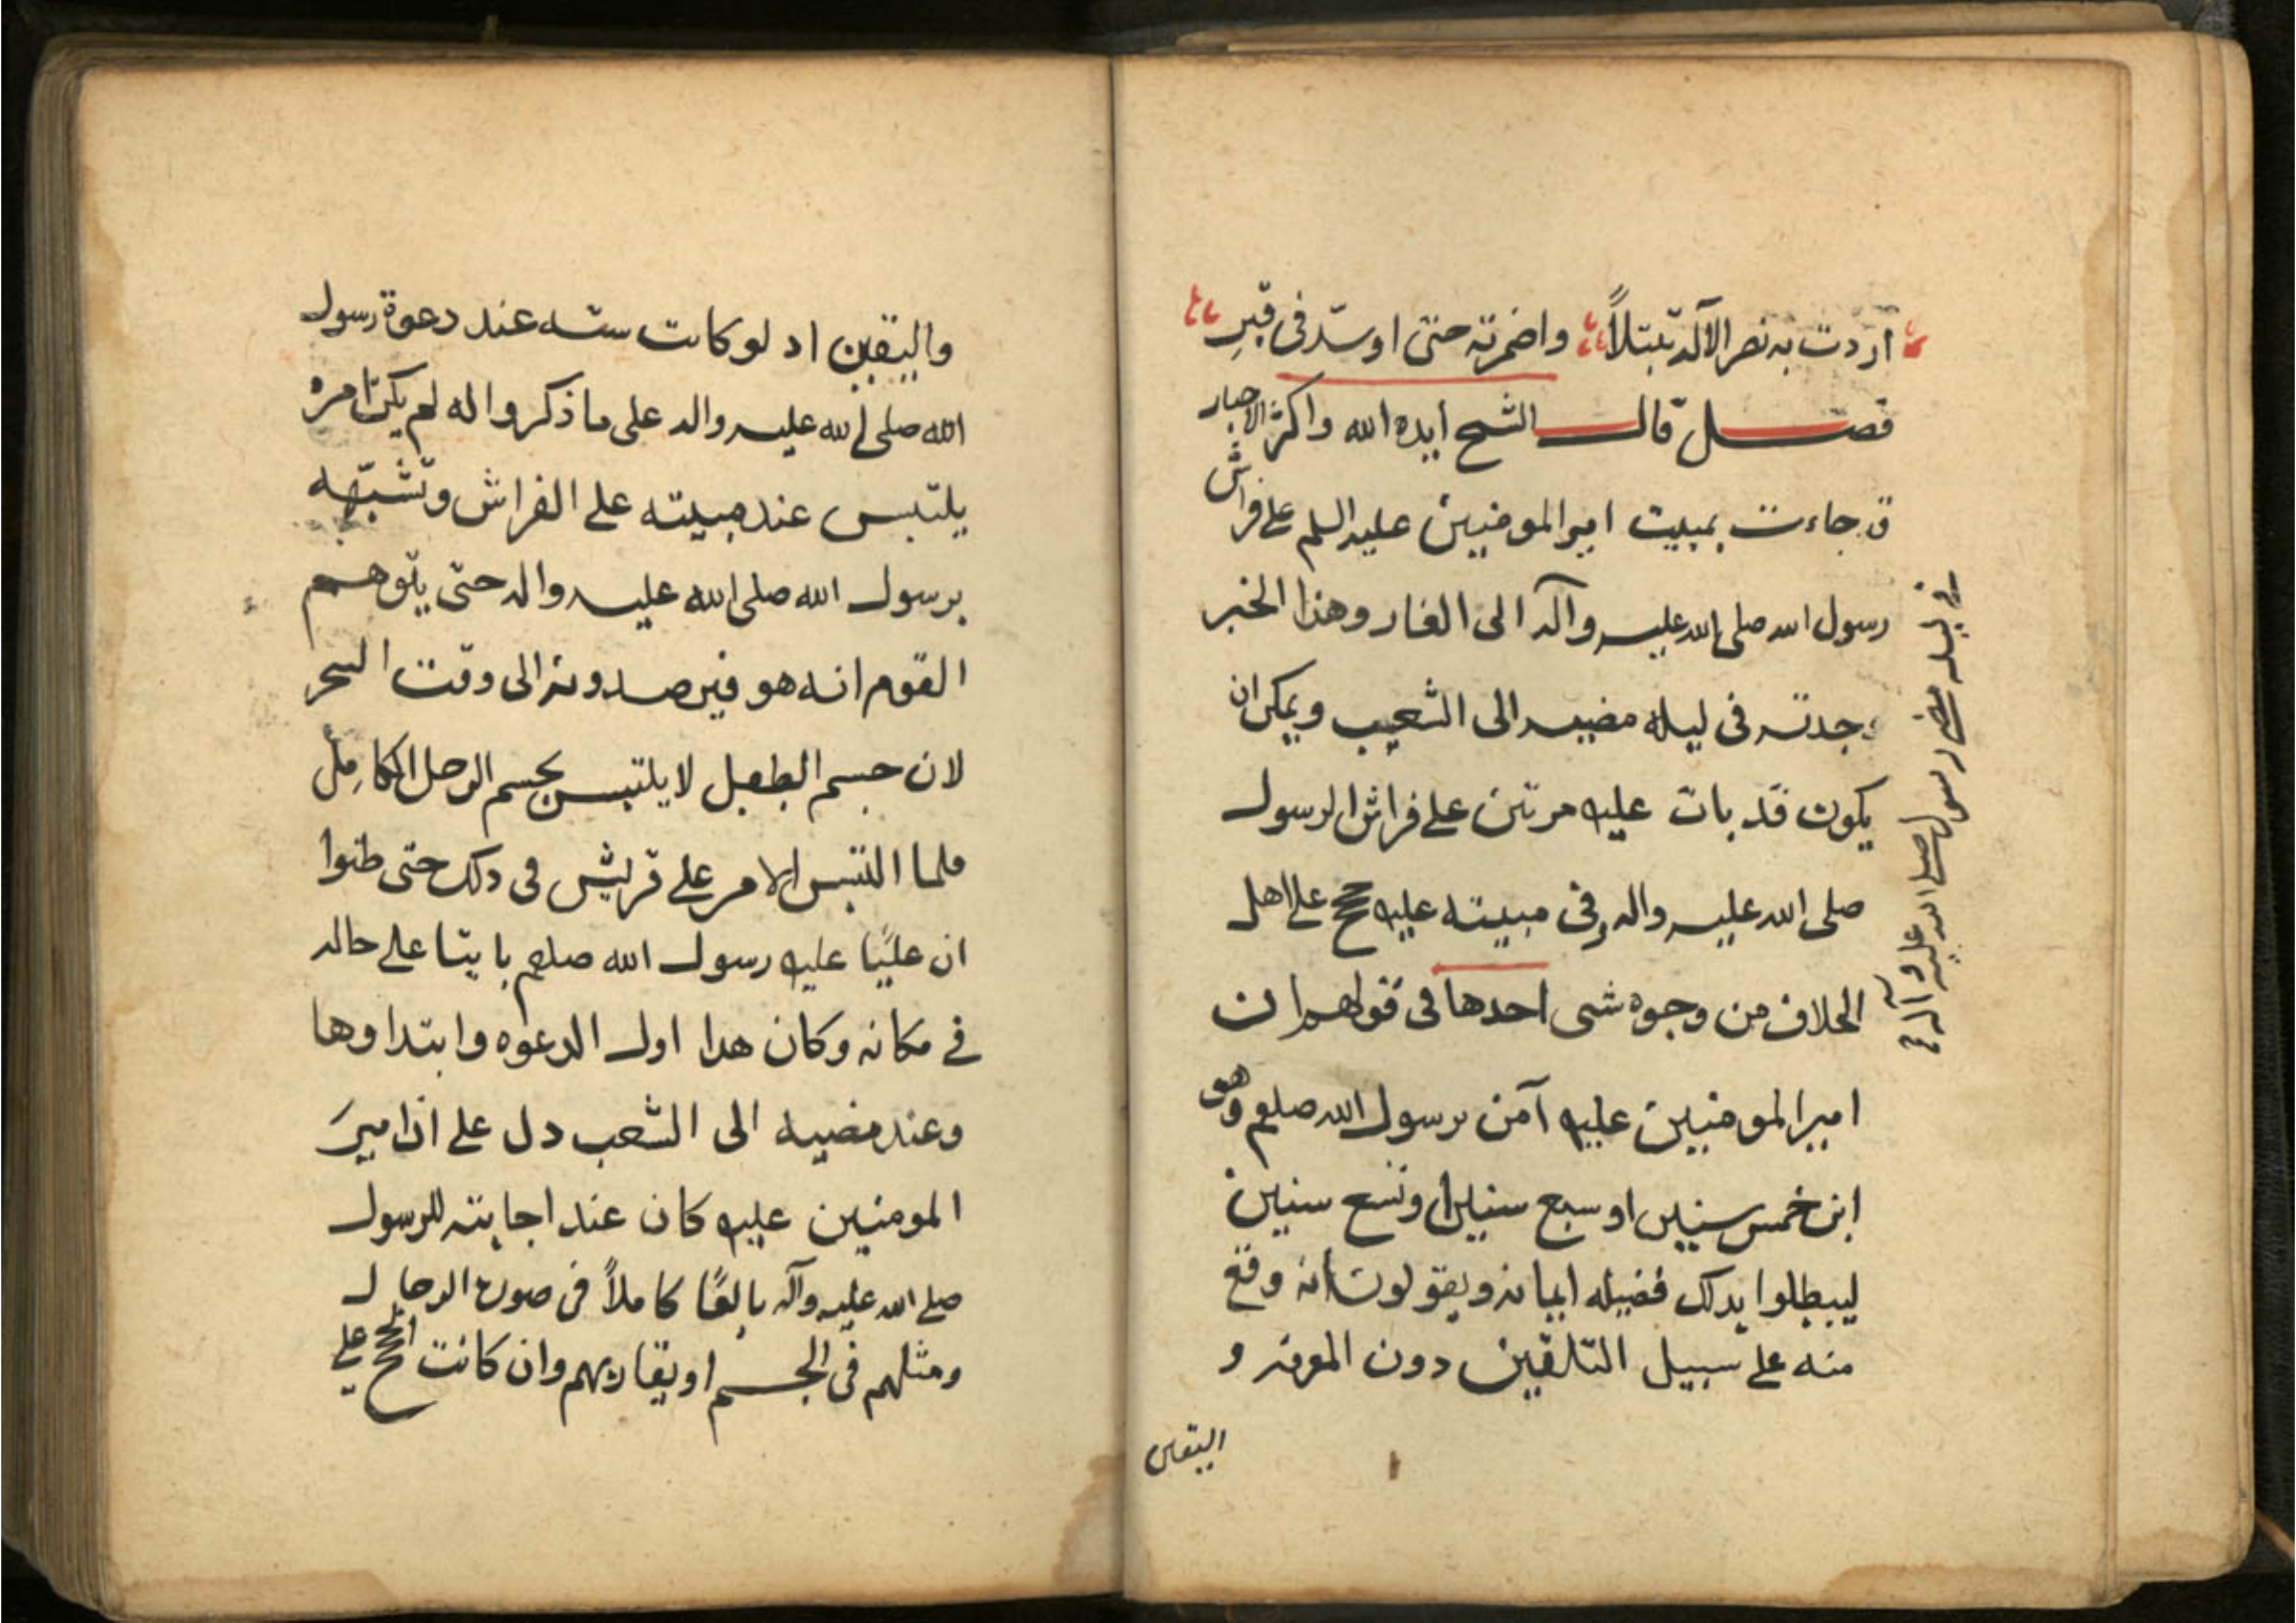 اردت به نصر الآله تبتلاً واضمرته حتى اوسّد فى قبرِ
فصل قال الشيخ ايده الله واكثر الاخبار
ق جاءت بمبيت امير المومنين عليه السلم على فراش
رسول الله صلى الله عليه وآله الى الغار وهذا الخبر
وجدته فى ليله مضيه الى الشعب ويمكن ان
يكون قد بات عليه مرتين على فراش الرسول
صلى الله عليه واله وفى مبيته عليه حجج على اهل
الحلاف من وجوه شى احدها فى قولهم ان
امير المومنين عليه آمن برسول الله صلعم وهو
ابن خمس سنين او سبع سنين او تسع سنين
ليبطلوا بدلك فضيله ايمانه ويقولون انه وقع
منه على سبيل التلقين دون المعرفه و
اليقين
فى ليله مضى رسول الله صلى الله عليه وآله
واليقين اد لو كانت سنه عند دعوة رسول
الله صلى الله عليه واله على ما ذكروا له لم يكن امره
يلتبس عند مبيته على الفراش وتشبّهه
برسول الله صلى الله عليه واله حتى يتوهم
القوم انه هو فيرصدونه الى وقت السحر
لان جسم الطفل لا يلتبس بجسم الرجل الكامِل
فلما التبس الامر على قريش فى دلك حتى ظنوا
ان عليًا عليه رسول الله صلعم بايتا على حاله
فى مكانه وكان هدا اول الدعوه وابتداوها
وعند مضيه الى الشعب دل على ان اميرَ
المومنين عليه كان عند اجابته للرسول
صلى الله عليه وآله بالغًا كاملاً فى صورة الرجال
ومثلهم فى الجسم او يقاربهم وان كانت الحجج على